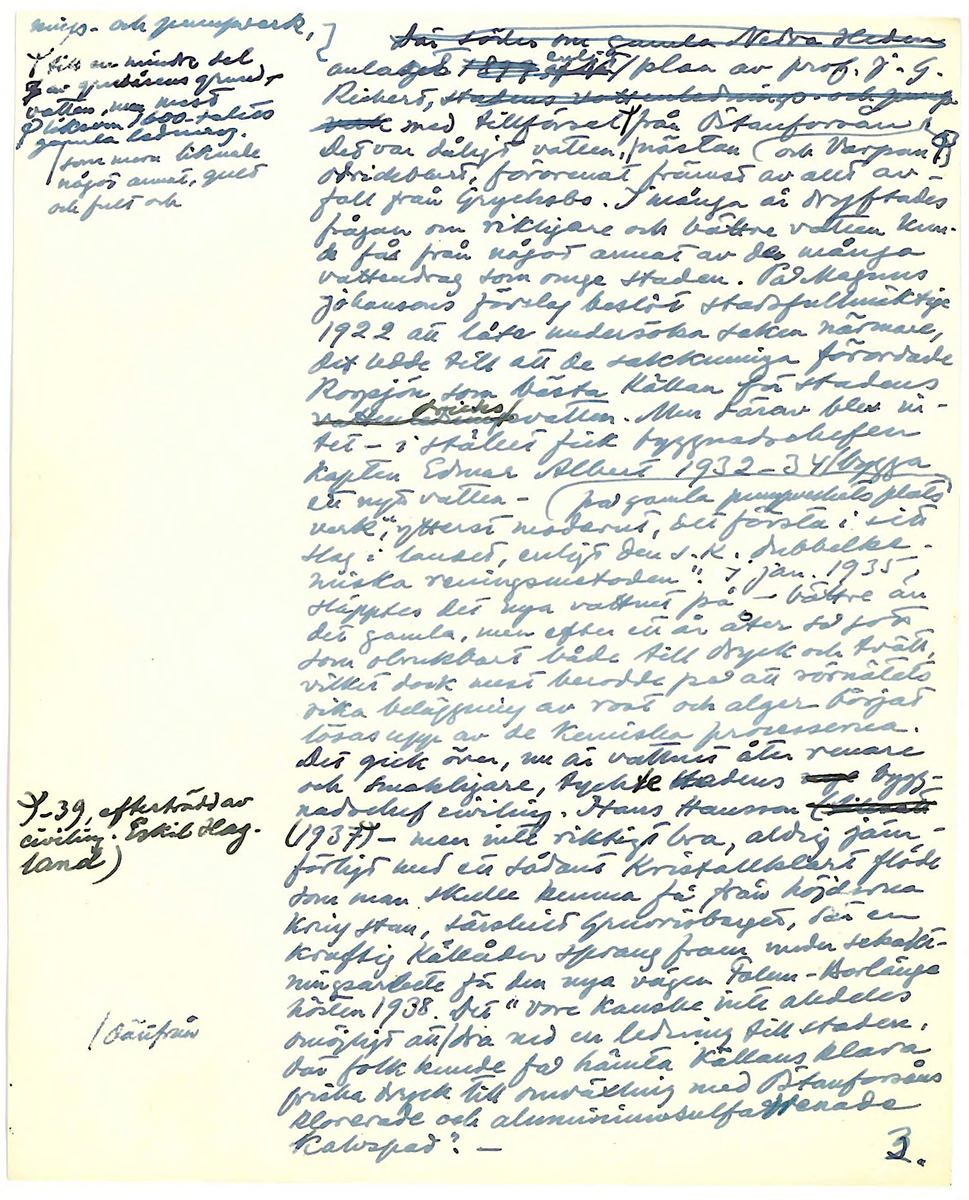 nings- och pumpverk,
till en mindre del
av gruvårens grund-
vatten, men mest
liksom 1600-talets
gamla ledning.
som mera liknade
något annat, gult
och fult och
där söder om gamla Nedra Hedens
anlagt 1899 enligt plan av prof. J. G.
Richert, stadens vattenlednings- och pump-
verk med tillförsel från Östanforsån
Det var dåligt vatten, nästan och Varpan
odrickbart, förorenat främst av allt av-
fall från Grycksbo. I många år dryftades
frågan om rikligare och bättre vatten kun-
de fås från något annat av de många
vattendrag som omge staden. På Magnus
Johansons förslag beslöt stadsfullmäktige
1922 att låta undersöka saken närmare,
det ledde till att de sakkunniga förordade
Rogsjön som bästa källan för stadens
vattenlednings dricks vatten. Men därav blev in-
tet - i stället fick byggnadschefen
kapten Edmar Albert 1932-34 bygga
ett nytt vatten- på gamla pumpverkets plats
verk, "ytterst modernt, det första i sitt
slag i landet, enligt den s.k. dubbelke-
miska reningsmetoden". I jan. 1935
släpptes det nya vattnet på - bättre än
det gamla, men efter ett år åter så gott
som obrukbart både till dryck och tvätt,
vilket dock mest berodde på att rörnätets
rika beläggning av rost och alger börjat
lösas upp av de kemiska processerna.
Det gick över, nu är vattnet åter renare
och smakligare, tyckte stadens bygg-
nadschef civiling. Hans Hansson
(1937) - men inte riktigt bra, aldrig jäm-
förligt med ett sådant kristallklart flöde
som man skulle kunna få från höjderna
kring stan, särskilt Gruvrisberget, där en
kraftig källåder sprang fram under schakt-
ningsarbete för den nya vägen Falun-Borlänge
hösten 1938. Det "vore kanske inte alldeles
omöjligt att dra ned en ledning till staden,
där folk kunde få hämta källans klara
friska dryck till omväxling med Östanforsåns
klorerade och aluminiumsulfatrenade
kalvspad". -
-39, efterträdd av
civiling. Eskil Hag-
land)
därifrån
3.